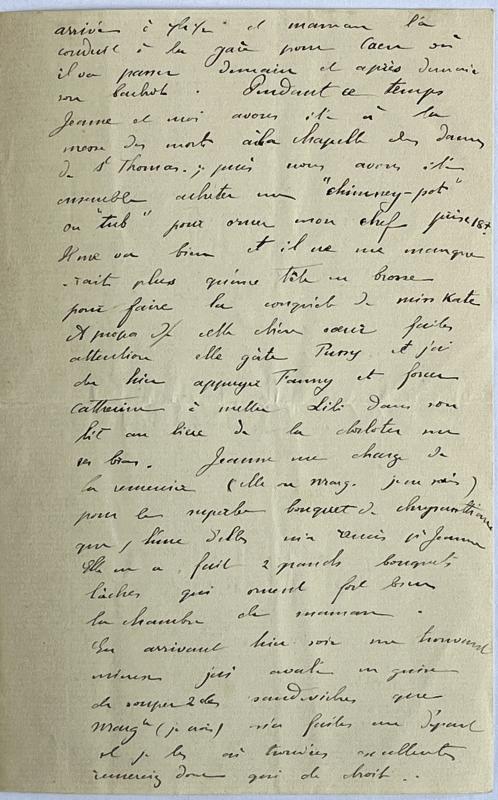 arrivée à et maman l'a
conduit à la gare pour Caen où
il va passer demain et après demain
son bachot. Pendant ce temps
Jeanne et moi avons été à la
messe des morts à la chapelle des dames
de St Thomas. puis nous avons été
ensemble acheter un "chimney-pot"
ou "tub" pour orner mon chef prix 18f
Il me va bien et il ne me manque
-rait plus qu'une tête en brosse
pour faire la conquête de miss Kate
A propos de cette chère sœur faites
attention elle gâte Pussy et j'ai
du hier appuyer Fanny et forcer
Catherine à mettre Lili dans son
lit au lieu de la dorloter sur
ses bras. Jeanne me charge de
la remercier (elle ou Marg. je ne sais)
pour le superbe bouquet de chrysanthème
que l'une d'elles m'a remis pr Jeanne
Elle en a fait 2 grands bouquets
lâches qui ornent fort bien
la chambre de maman.
En arrivant hier soir me trouvant
j'ai avalé en guise
de souper 2 des sandwiches que
Margte (je crois) m'a faites au départ
et je les ai trouvées excellentes
remerciez donc qui de droit..